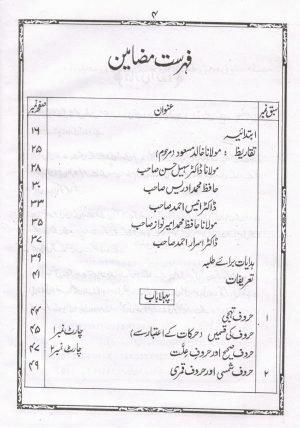 ۴
فہرست مضامین
سبق نمبر عنوان صفحہ نمبر
ابتدائیہ ۱۶
تقاریظ : مولانا خالد مسعود (مرحوم) ۲۵
مولانا ڈاکٹر سہیل حسن صاحب ۲۸
حافظ محمد ادریس صاحب ۳۰
ڈاکٹر انیس احمد صاحب ۳۳
مولانا حافظ محمد امیر نواز صاحب ۳۵
ڈاکٹر اسرار احمد صاحب ۳۷
ہدایات برائے طلبہ ۳۹
تعریفات ۴۱
پہلا باب
۱ حروف تہجی ۴۴
حروف کی قسمیں (حرکات کے اعتبار سے) چارٹ نمبر۱ ۴۵
حروف صحیح اور حروف علّت چارٹ نمبر۱ ۴۷
۲ حروف شمسی اور حروف قمری ۴۹